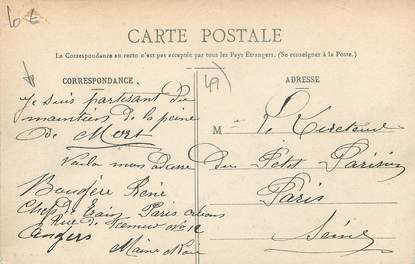 6 €
CARTE POSTALE
La Correspondance au recto n'est pas acceptée par tous les Pays Étrangers. (Se renseigner à la Poste.)
CORRESPONDANCE
Je suis partisant du
maintien de la peine
de Mort
Voila mon adresse
Bougère René
Chef de Train Paris Orléans
Rue de N° 12
Angers
Maine Loire
49
ADRESSE
M Le Directeur
du Petit Parisien
Paris
Seine